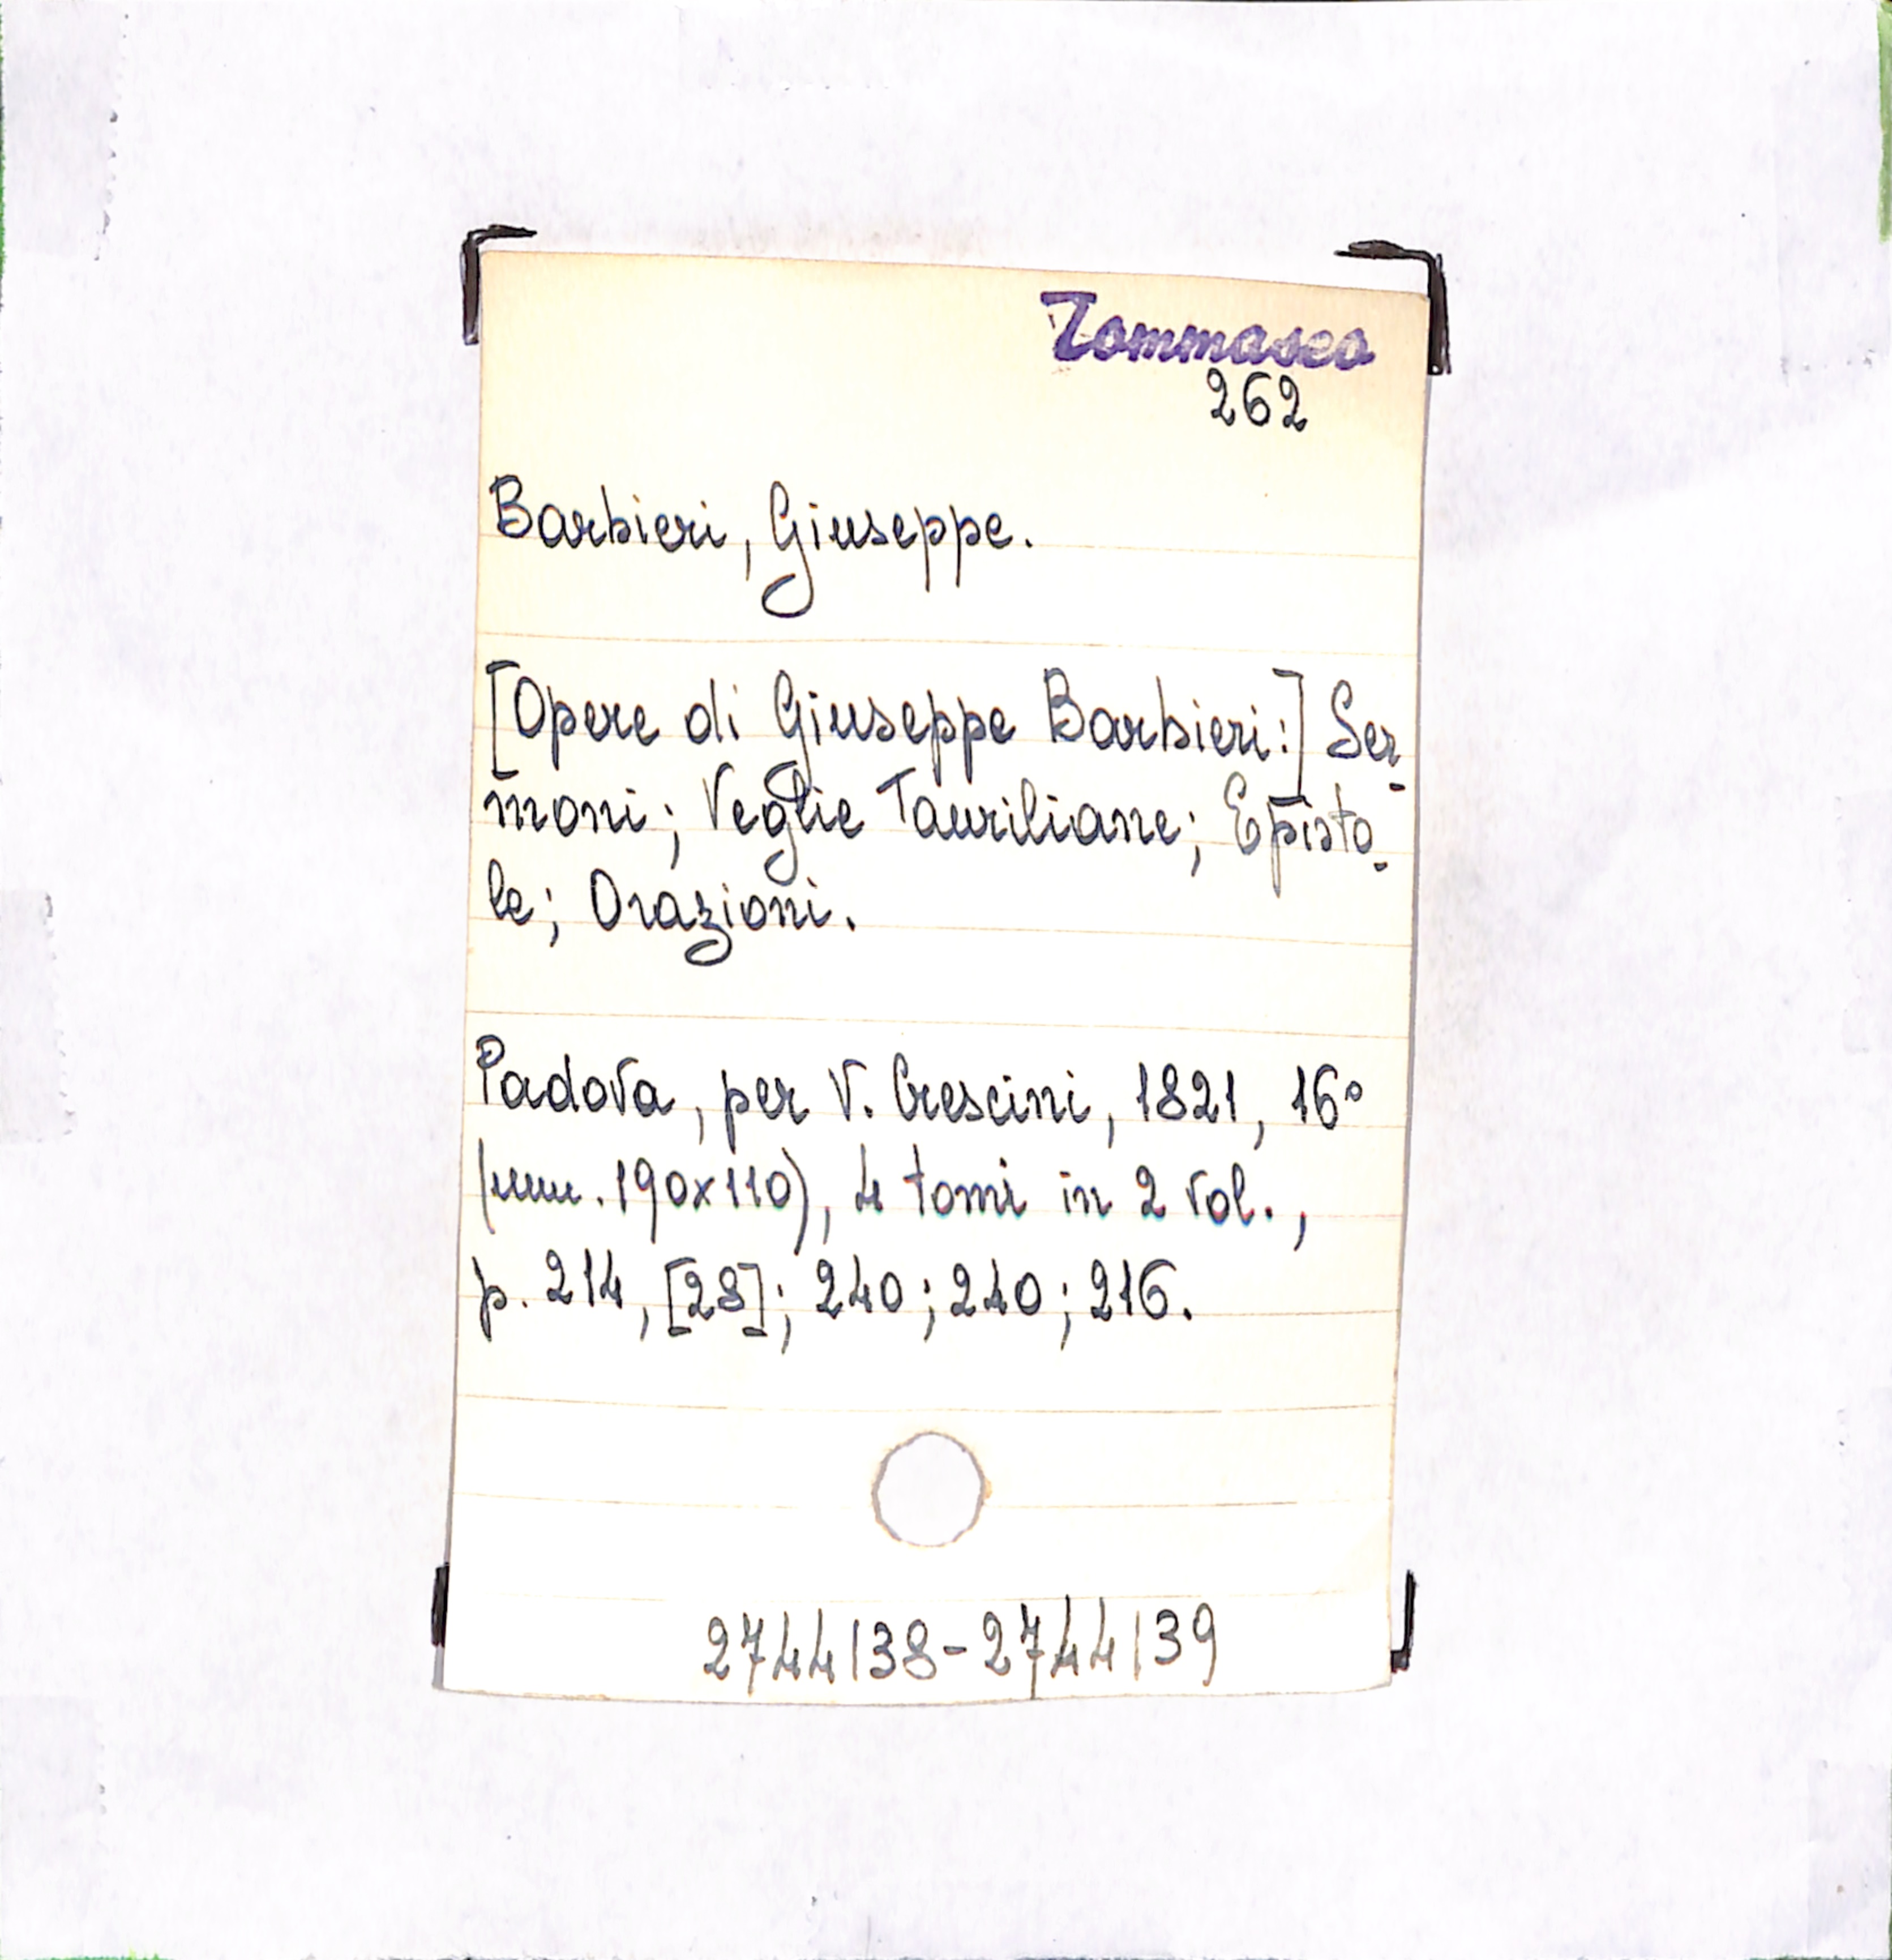 Tommaseo
262
Barbieri, Giuseppe.
[Opere di Giuseppe Barbieri:] Ser-
moni; Veglie Tauriliane; Episto-
le; Orazioni.
Padova, per V. Crescini, 1821, 16°
(mm. 190x110), 4 tomi in 2 vol.,
p. 214, [28]; 240; 240; 216.
2744138-2744139